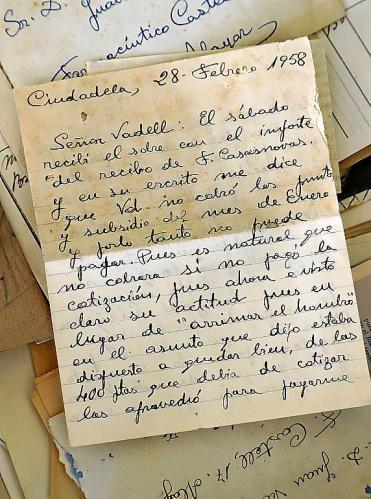 Sr. D. Juan
Farmacéutico
Alayor
Ciudadela, 28-Febrero 1958
Señor Vadell: El sábado
recibí el sobre con el importe
del recibo de F. Casasnovas.
y en su escrito me dice
que Vd. no cobró los puntos
y subsidio del mes de Enero
y por lo tanto no puede
pagar. Pues es natural, que
no cobrara si no pagó la
cotización, pues ahora e visto
claro su actitud pues en
lugar de "arrimar el hombro
en el asunto que dijo estaba
dispuesto a quedar bien, de las
400 ptas que debía de cotizar
las aprovedió para pagarme
D. Juan